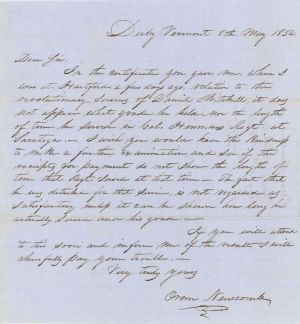 Derby Vermont 8th May 1854
Dear Sir.
In the certificate you gave me when I
was at Hartford a few days ago, relative to the
revolutionary services of Daniel Mitchell, it does
not appear what grade he held, nor the length
of time he served in Col. Regt. at
Saratoga. I wish you would have the kindness
to make a further examination, and see if the
receipts for payment do not show the length of
time that Regt. served at that time. The fact that
he was detached for that service, is not regarded as
satisfactory, unless it can be shown how long he
actually served and his grade.
If you will attend
to this soon and inform me of the result I will
cheerfully pay your trouble.
Very truly yours
Orem Newcomb